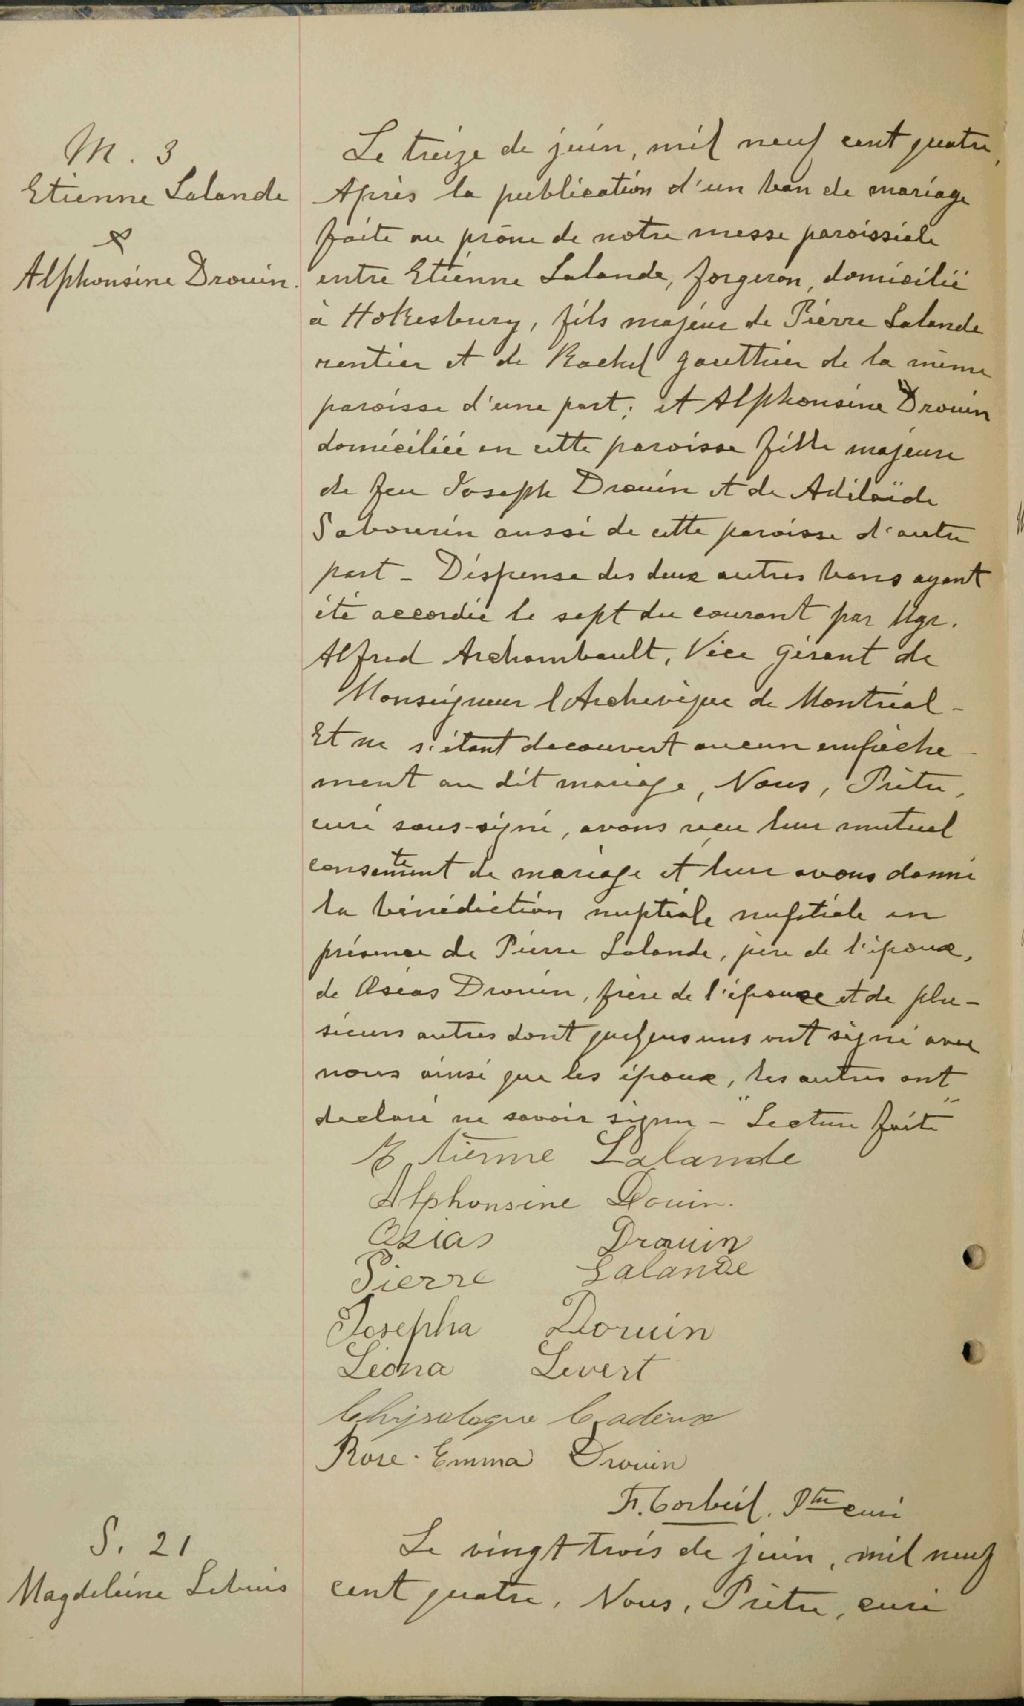 M. 3
Etienne Lalande
&
Alphonsine Drouin.
Le treize de juin, mil neuf cent quatre,
Après la publication d'un ban de mariage
faite au prône de notre messe paroissiale
entre Etienne Lalande, forgeron, domicilié
à Hokesbury, fils majeur de Pierre Lalande
rentier et de Rachel Gauthier de la même
paroisse d'une part; et Alphonsine Drouin
domiciliée en cette paroisse fille majeure
de feu Joseph Drouin et de Adélaïde
Sabourin aussi de cette paroisse d'autre
part - Dispense des deux autres bans ayant
été accordée le sept du courant par Mgr.
Alfred Archambault, Vice Gérent de
Monseigneur l'Archevêque de Montréal -
Et ne s'étant decouvert aucun empêche-
ment au dit mariage, Nous, Prêtre,
curé sous-signé, avons reçu leur mutuel
consentement de mariage et leur avons donné
la bénédiction nuptiale nuptiale en
présence de Pierre Lalande, père de l'époux,
de Osias Drouin, frère de l'épouse et de plu-
sieurs autres dont quelques uns ont signé avec
nous ainsi que les époux, les autres ont
declaré ne savoir signer - "Lecture faite"
Etienne Lalande
Alphonsine Douin.
Osias Drouin
Pierre Lalande
Josepha Drouin
Léona Levert
Chrysologue Cadieux
Rose-Emma Drouin
F. Corbeil. Ptre curé
S. 21
Magdeleine
Le vingt trois de juin, mil neuf
cent quatre, Nous, Prêtre, curé